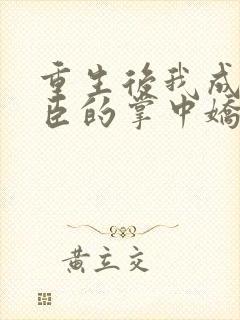 重生後我成
臣的掌中嬌
黃立交